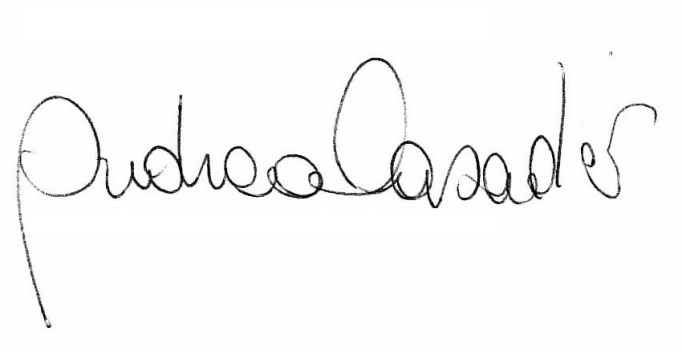 Andrea Casadei